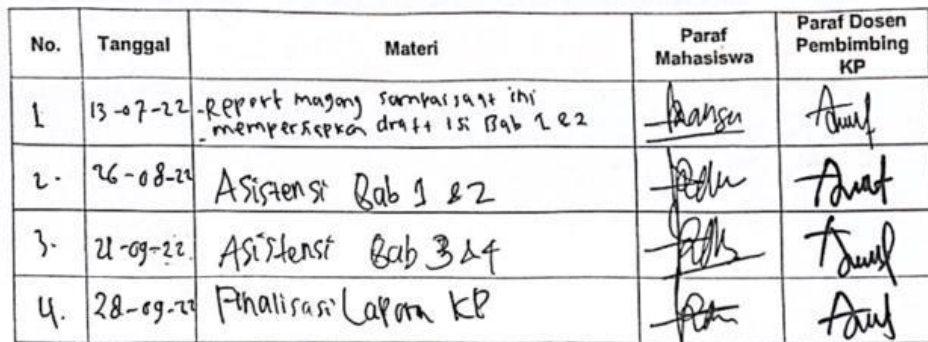 No. Tanggal Materi Paraf Mahasiswa Paraf Dosen Pembimbing KP
1 13-07-22 - Report magang sampai saat ini
- mempersiapkan draft isi Bab 1 & 2
2. 26-08-22 Asistensi Bab 1 & 2
3. 21-09-22 Asistensi Bab 3 & 4
4. 28-09-22 Finalisasi Laporan KP